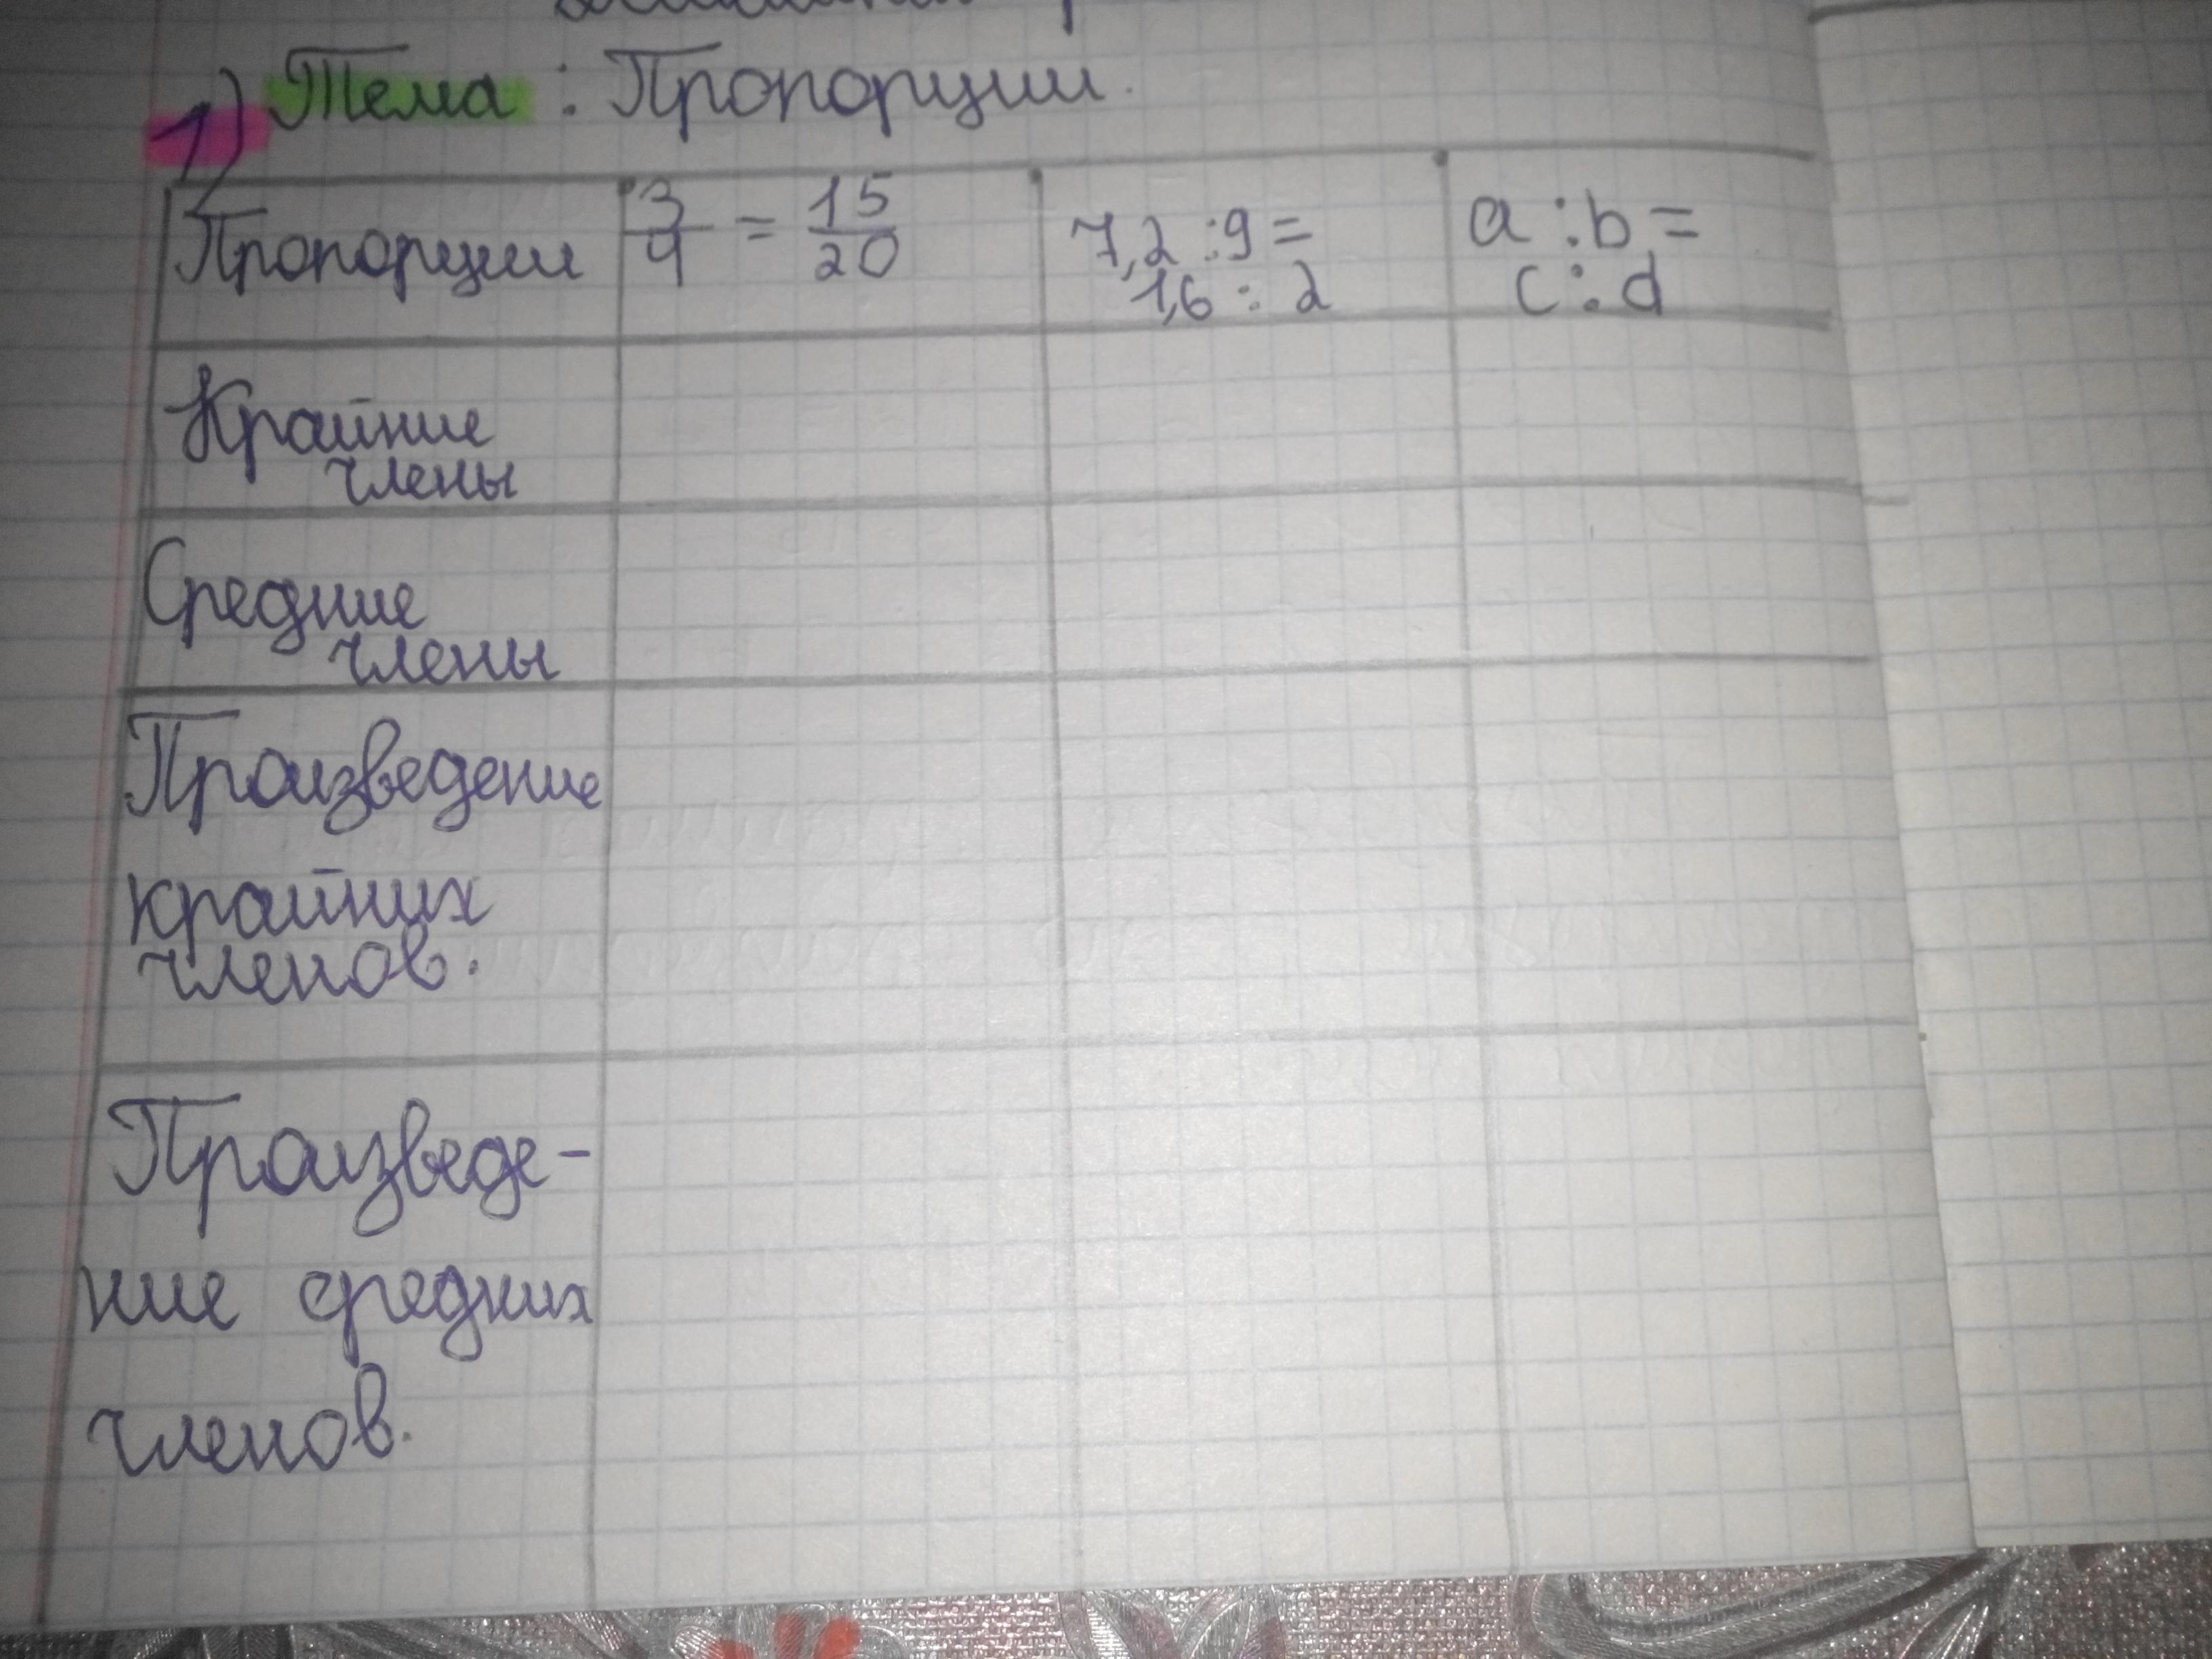 1) Тема : Пропорции.
Пропорции
3/4 = 15/20
7,2 : 9 =
1,6 : 2
a : b =
c : d
Крайние
члены
Средние
члены
Произведение
крайних
членов.
Произведе-
ние средних
членов.